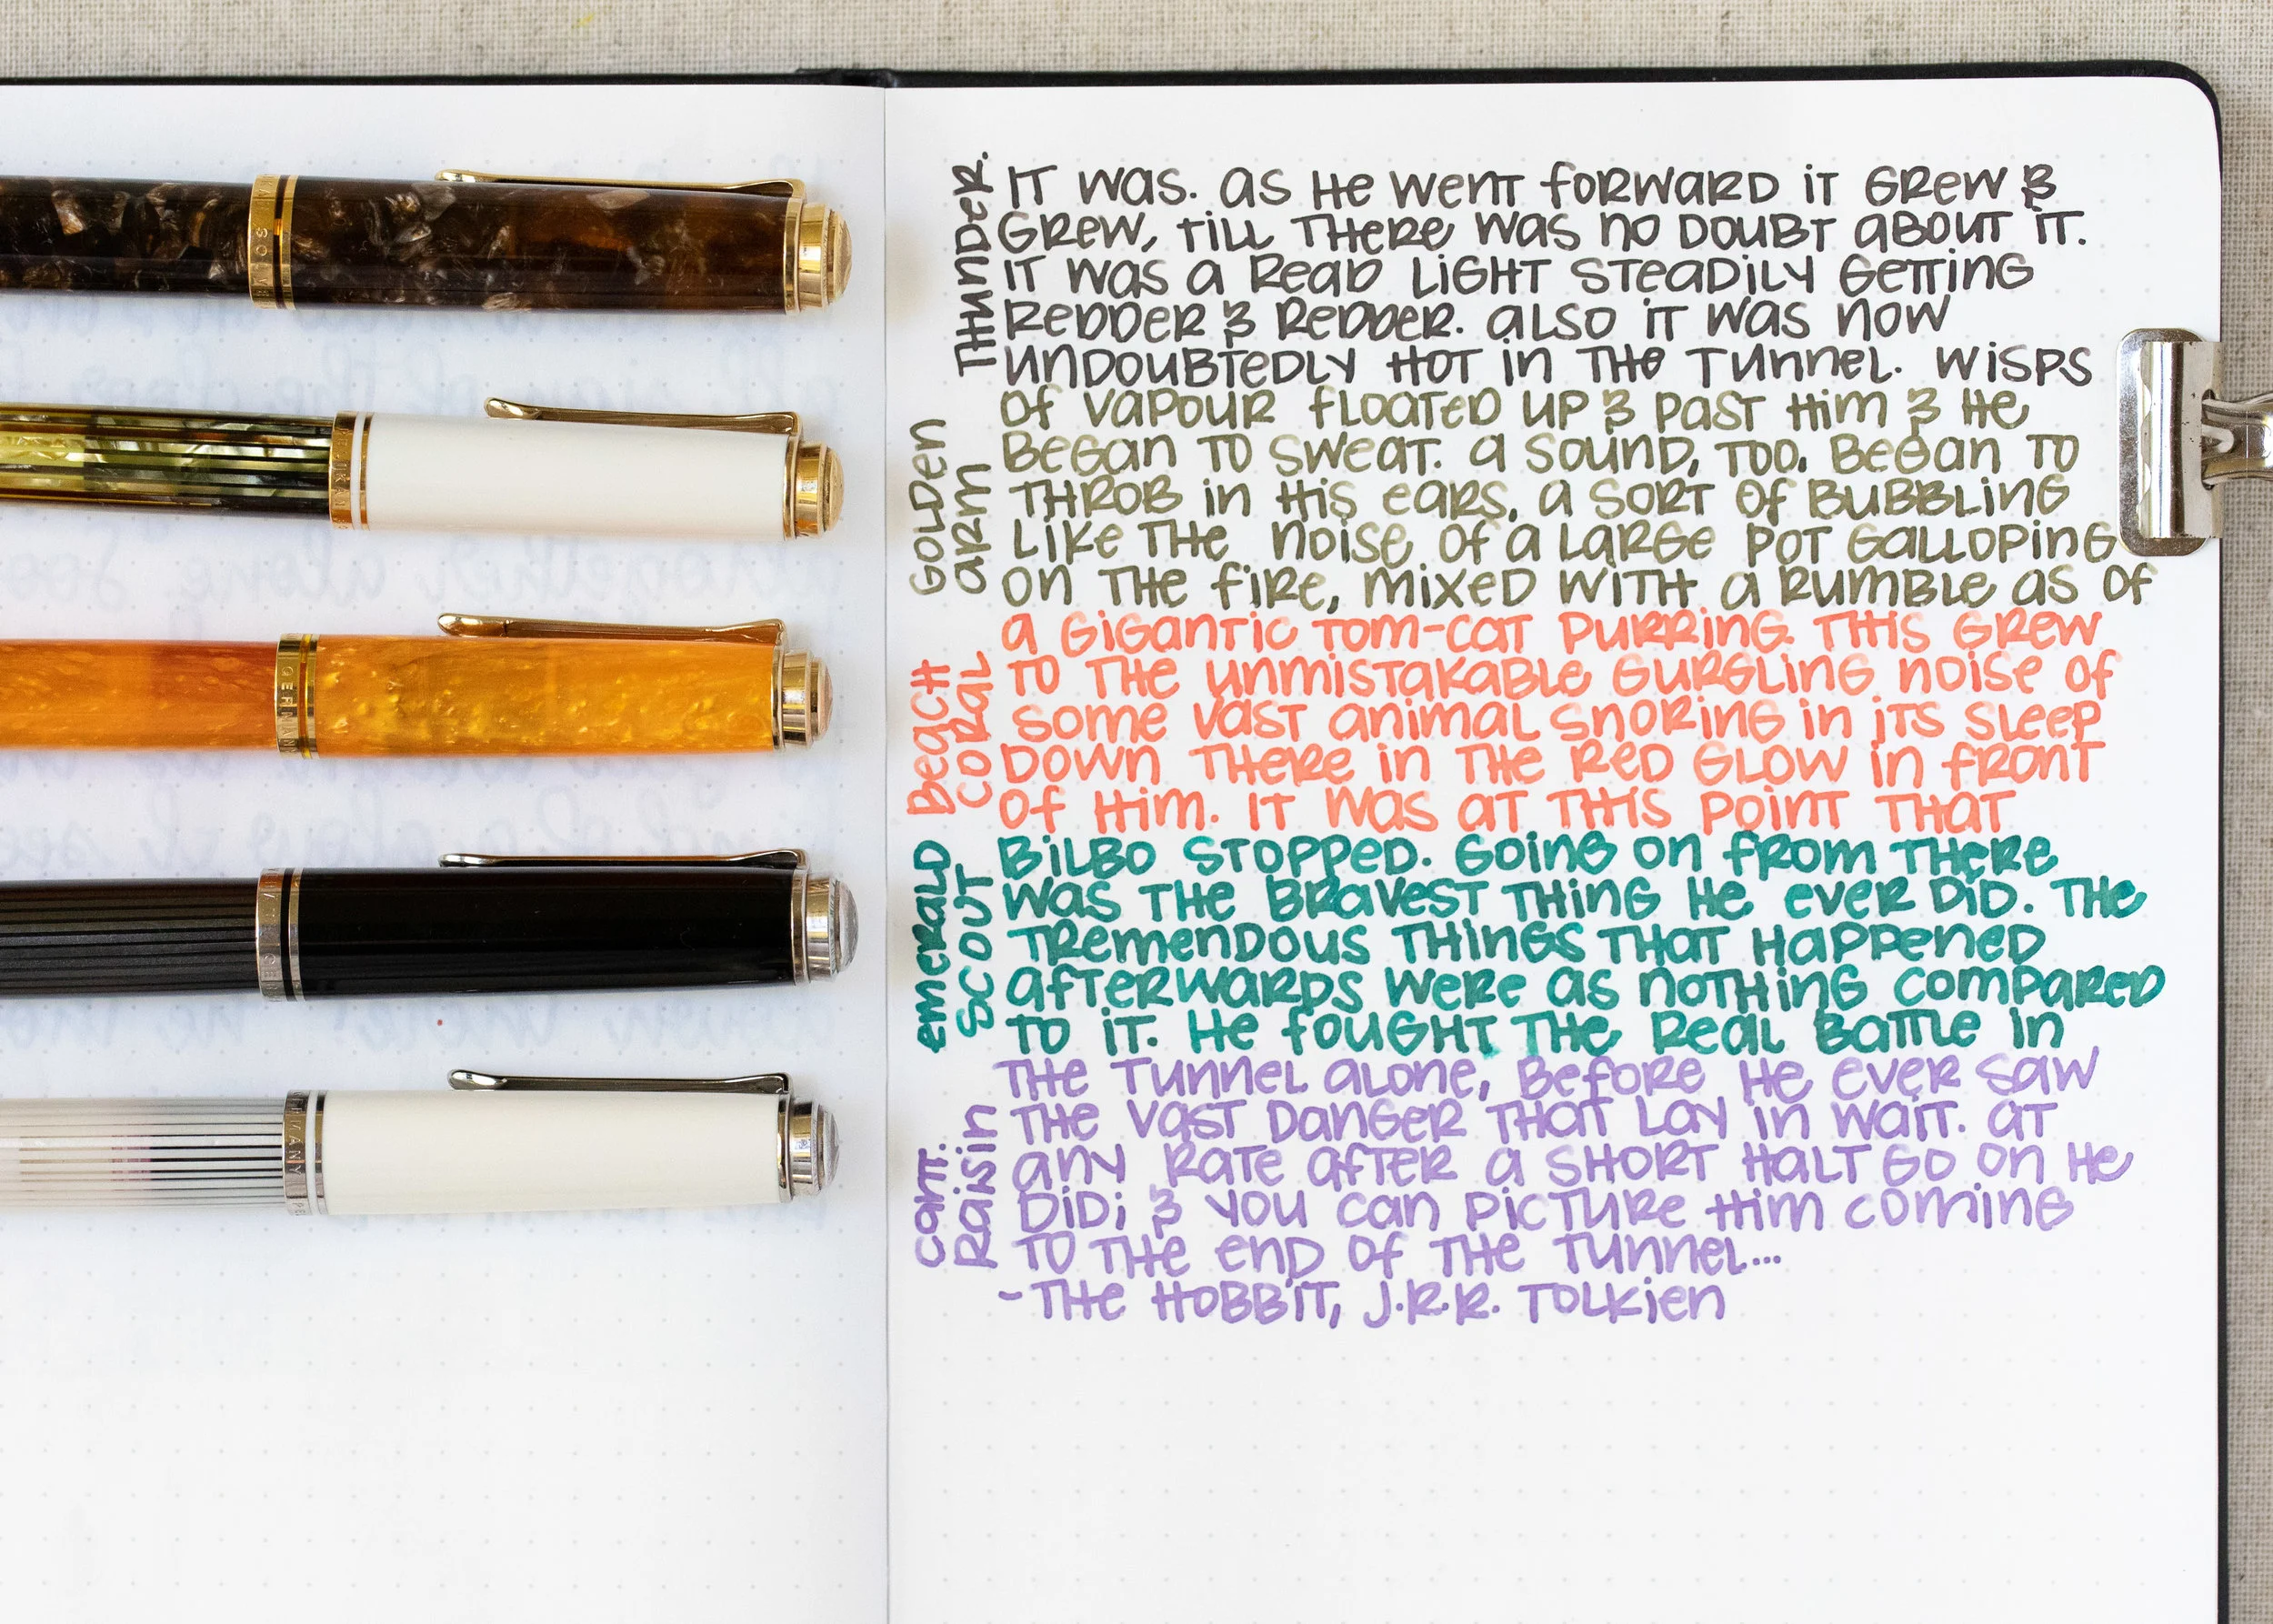 THUNDER.
IT WAS. AS HE WENT FORWARD IT GREW &
GREW, TILL THERE WAS NO DOUBT ABOUT IT.
IT WAS A READ LIGHT STEADILY GETTING
REDDER & REDDER. ALSO IT WAS NOW
UNDOUBTEDLY HOT IN THE TUNNEL. WISPS
GOLDEN
ARM
OF VAPOUR FLOATED UP & PAST HIM & HE
BEGAN TO SWEAT. A SOUND, TOO, BEGAN TO
THROB IN HIS EARS, A SORT OF BUBBLING
LIKE THE NOISE OF A LARGE POT GALLOPING
ON THE FIRE, MIXED WITH A RUMBLE AS OF
BEACH
CORAL
A GIGANTIC TOM-CAT PURRING. THIS GREW
TO THE UNMISTAKABLE GURGLING NOISE OF
SOME VAST ANIMAL SNORING IN ITS SLEEP
DOWN THERE IN THE RED GLOW IN FRONT
OF HIM. IT WAS AT THIS POINT THAT
EMERALD
SCOUT
BILBO STOPPED. GOING ON FROM THERE
WAS THE BRAVEST THING HE EVER DID. THE
TREMENDOUS THINGS THAT HAPPENED
AFTERWARDS WERE AS NOTHING COMPARED
TO IT. HE FOUGHT THE REAL BATTLE IN
CART.
RAISIN
THE TUNNEL ALONE, BEFORE HE EVER SAW
THE VAST DANGER THAT LAY IN WAIT. AT
ANY RATE AFTER A SHORT HALT GO ON HE
DID; & YOU CAN PICTURE HIM COMING
TO THE END OF THE TUNNEL...
-THE HOBBIT, J.R.R. TOLKIEN